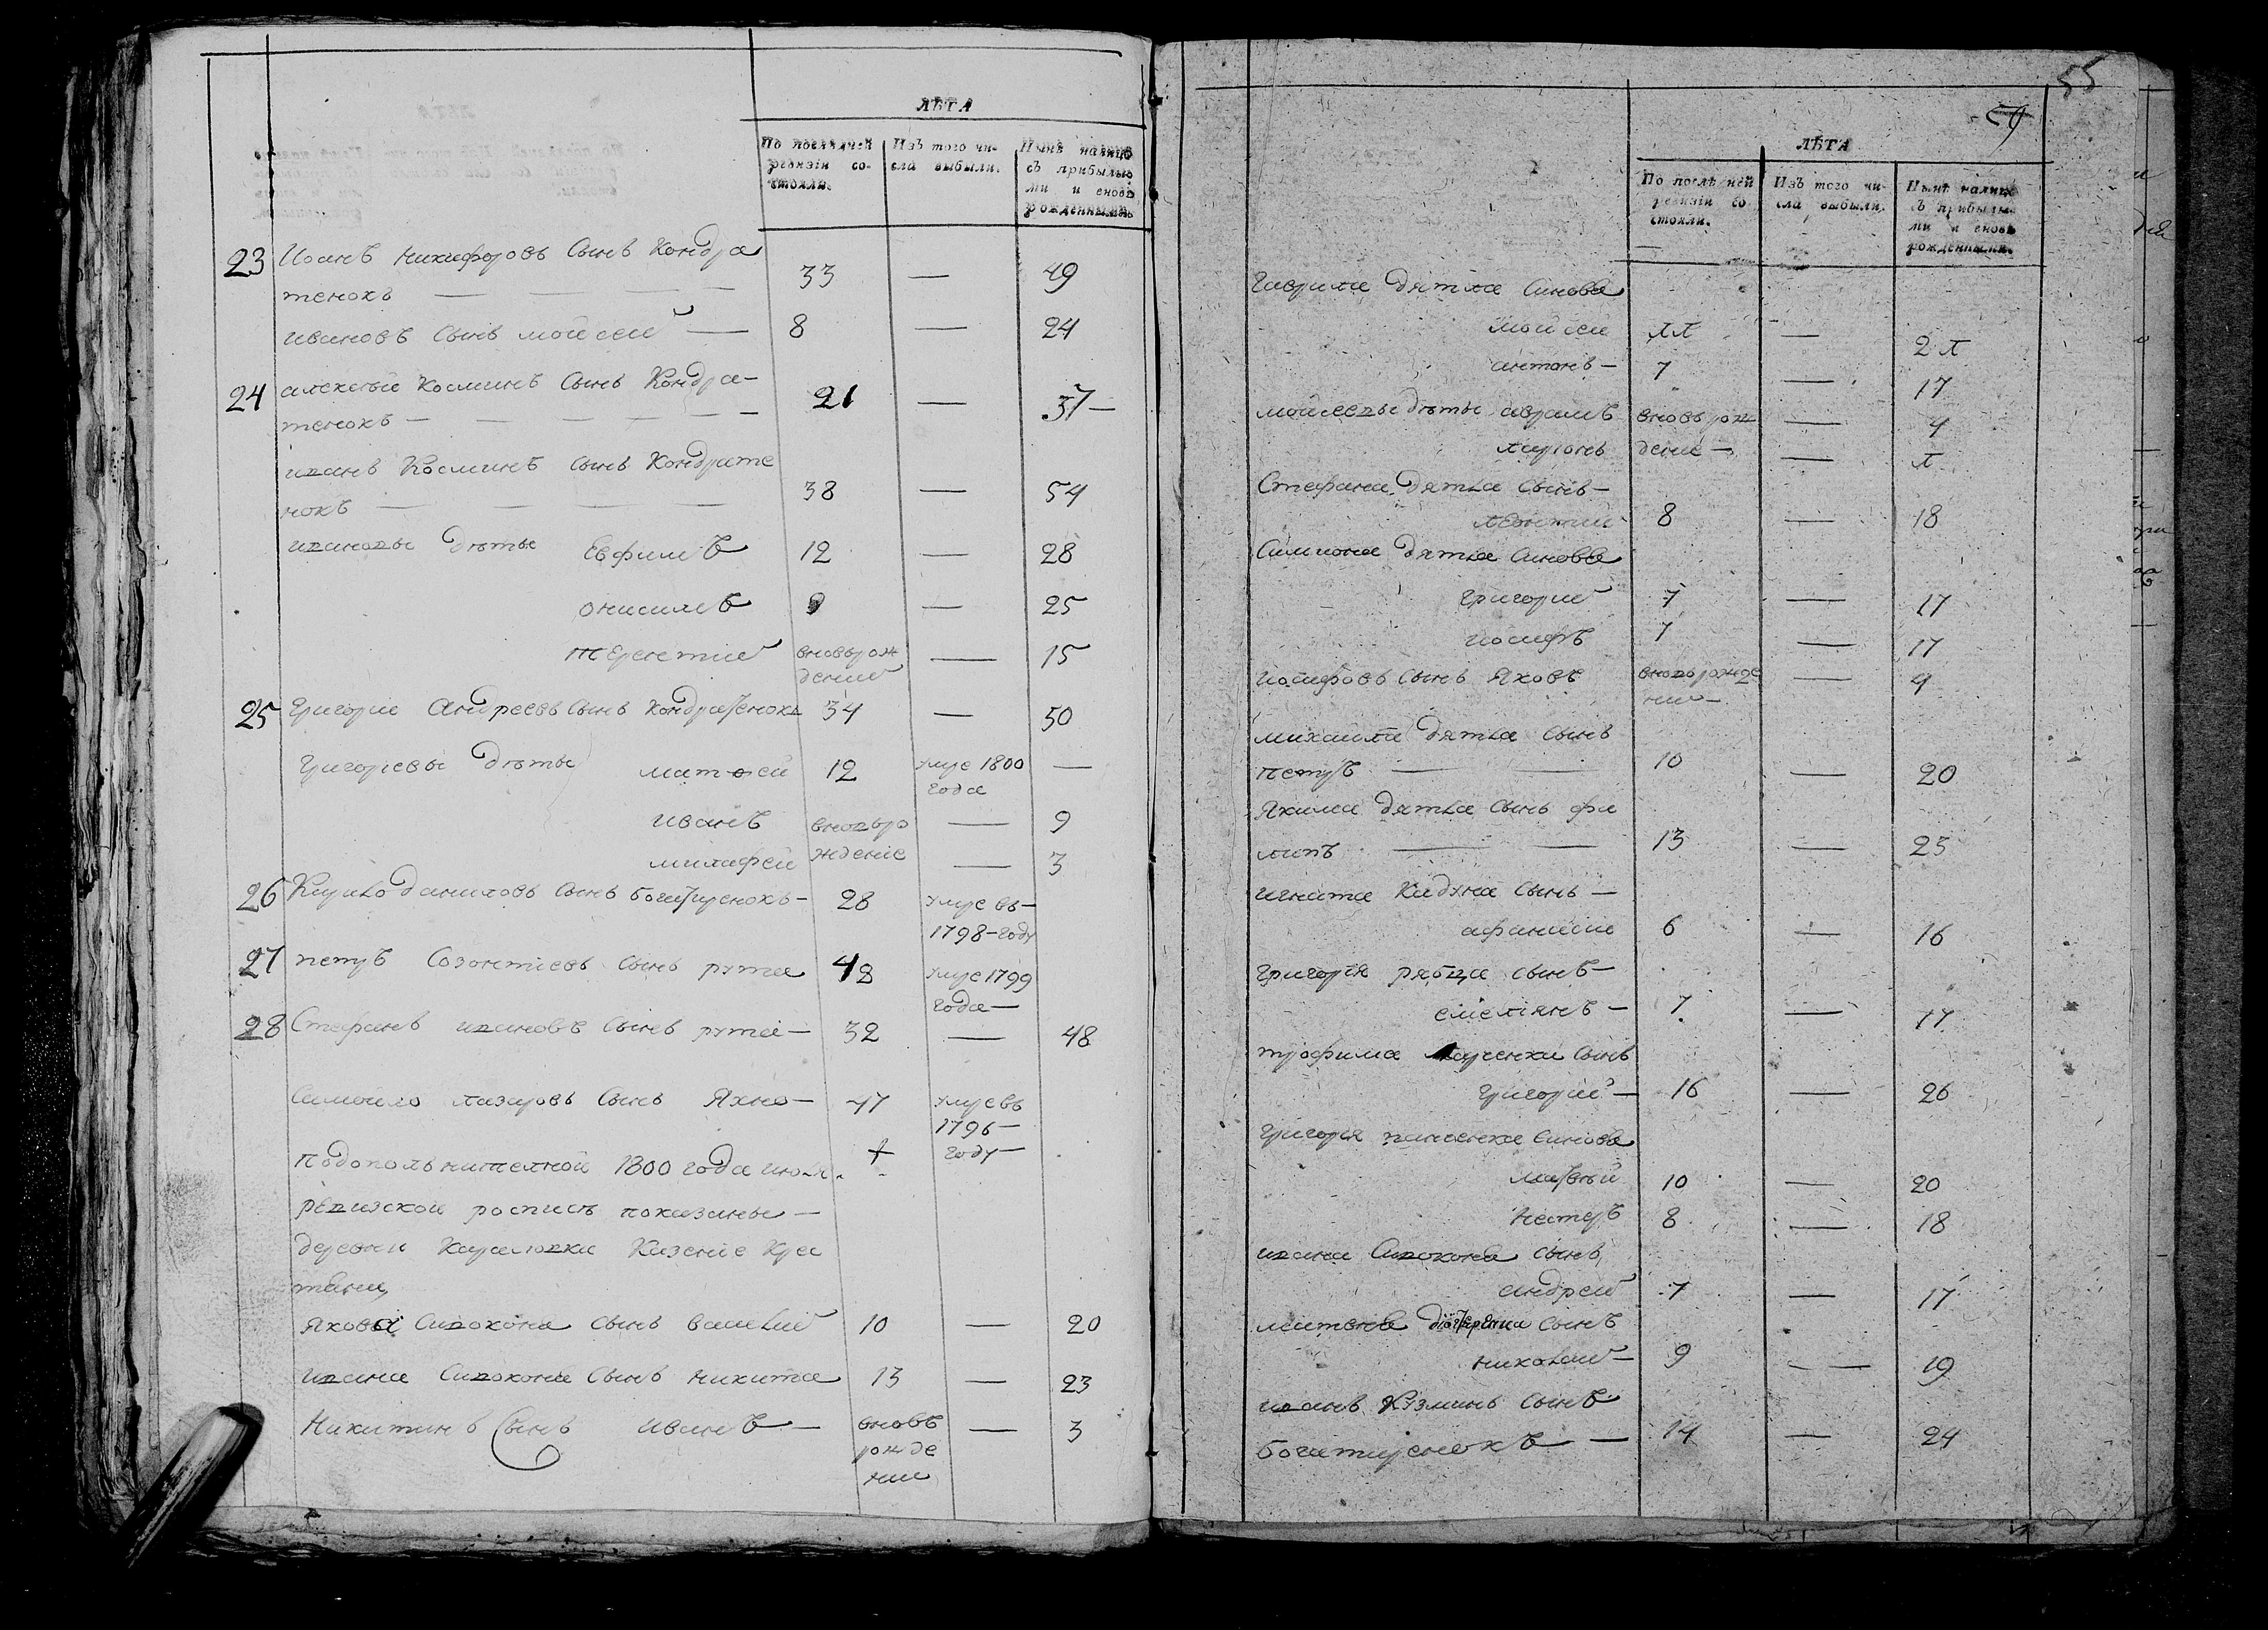 ЛѢТА
По послѣдней ревизіи состояли.
Изъ того числа выбыли.
Нынѣ налицо съ прибылыми и вновь рожденными.
23 Иоанъ никифоровъ Сынъ Кондра
тенокъ — — — — 33 — 49
ивановъ Сынъ мойсей — 8 — 24
24 алексѣй Косминъ Сынъ Кондра-
тенокъ — — — — 21 — 37 —
иванъ Косминъ сынъ Кондрате
нокъ — — — — 38 — 54
ивановы дѣты Евфимъ 12 — 28
онисимъ 9 — 25
терентий вновь рож 15
дений
25 Григорие Андреевъ Сынъ Кондратенокъ 34 — 50
Григориевы дѣты матфей 12 умре 1800 —
года
иванъ вновь ро — 9
ждение — 3
26 Кирило даниловъ Сынъ богатиренокъ — 28 умре въ —
1798 - году
27 петръ Созонтиевъ Сынъ рута 42 умре 1799
года —
28 Стефанъ ивановъ Сынъ рута — 32 — 48
Самойло лазаровъ Сынъ Яхно — 47 умре въ
1796 —
году —
подополнителной 1800 года июля
ревизской росписѣ показаны —
деревни Казение Крес
тяни
Якова Сивоконя сынъ василий 10 — 20
ивана Сивоконя Сынъ никита 13 — 23
Никитинъ Сынъ иванъ — вновъ — 3
рожде
ние
55
ЛѢТА
По послѣдней ревизіи состояли.
Изъ того числа выбыли.
Нынѣ налицо съ прибылыми и вновь рожденными.
Гаврила дятла Синове
мойсей 11 — 21
антонъ — 7 — 17
мойсеевы дѣты аврамъ вновь рож — 4
дение — — 1
Стефана дятла Сынъ —
леонтий 8 — 18
Симиона дятла Синове
григорие 7 — 17
иосифъ 7 — 17
иосифовъ Сынъ Яковъ вновь рожде — 4
ние —
михаила дятла Сынъ
петръ — — 10 — 20
Якима дятла Сынъ фи
липъ — — 13 — 23
игната Сынъ —
афанасие 6 — 16
Григорія рябца Сынъ —
емелянъ — 7 — 17
трофима Сынъ
григорие — 16 — 26
григория панченка Синове
матвѣй 10 — 20
нестеръ 8 — 18
ивана Сивоконя Сынъ
андрей 7 — 17
Сынъ
николай — 9 — 19
иванъ Кузминъ Сынъ
богатиренокъ — 14 — 24